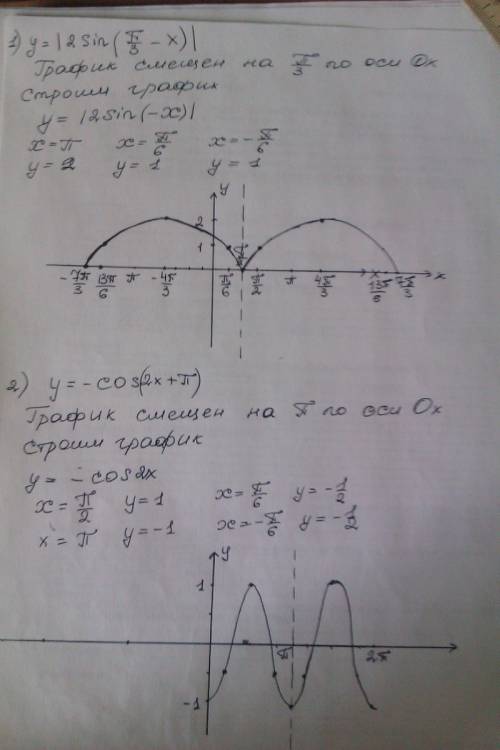 1) y = |2 sin (π/3 - x)|
График смещен на π/3 по оси Ox
строим график
y = |2 sin (-x)|
x = π x = π/6 x = -π/6
y = 2 y = 1 y = 1
y
2
1
-7π/3 13π/6 π -4π/3 π/6 π/2 π 4π/3 13π/6 7π/3 x
2) y = -cos(2x + π)
График смещен на π по оси Ox
строим график
y = -cos2x
x = π/2 y = 1 x = π/6 y = -1/2
x = π y = -1 x = -π/6 y = -1/2
y
1
π 2π
-1